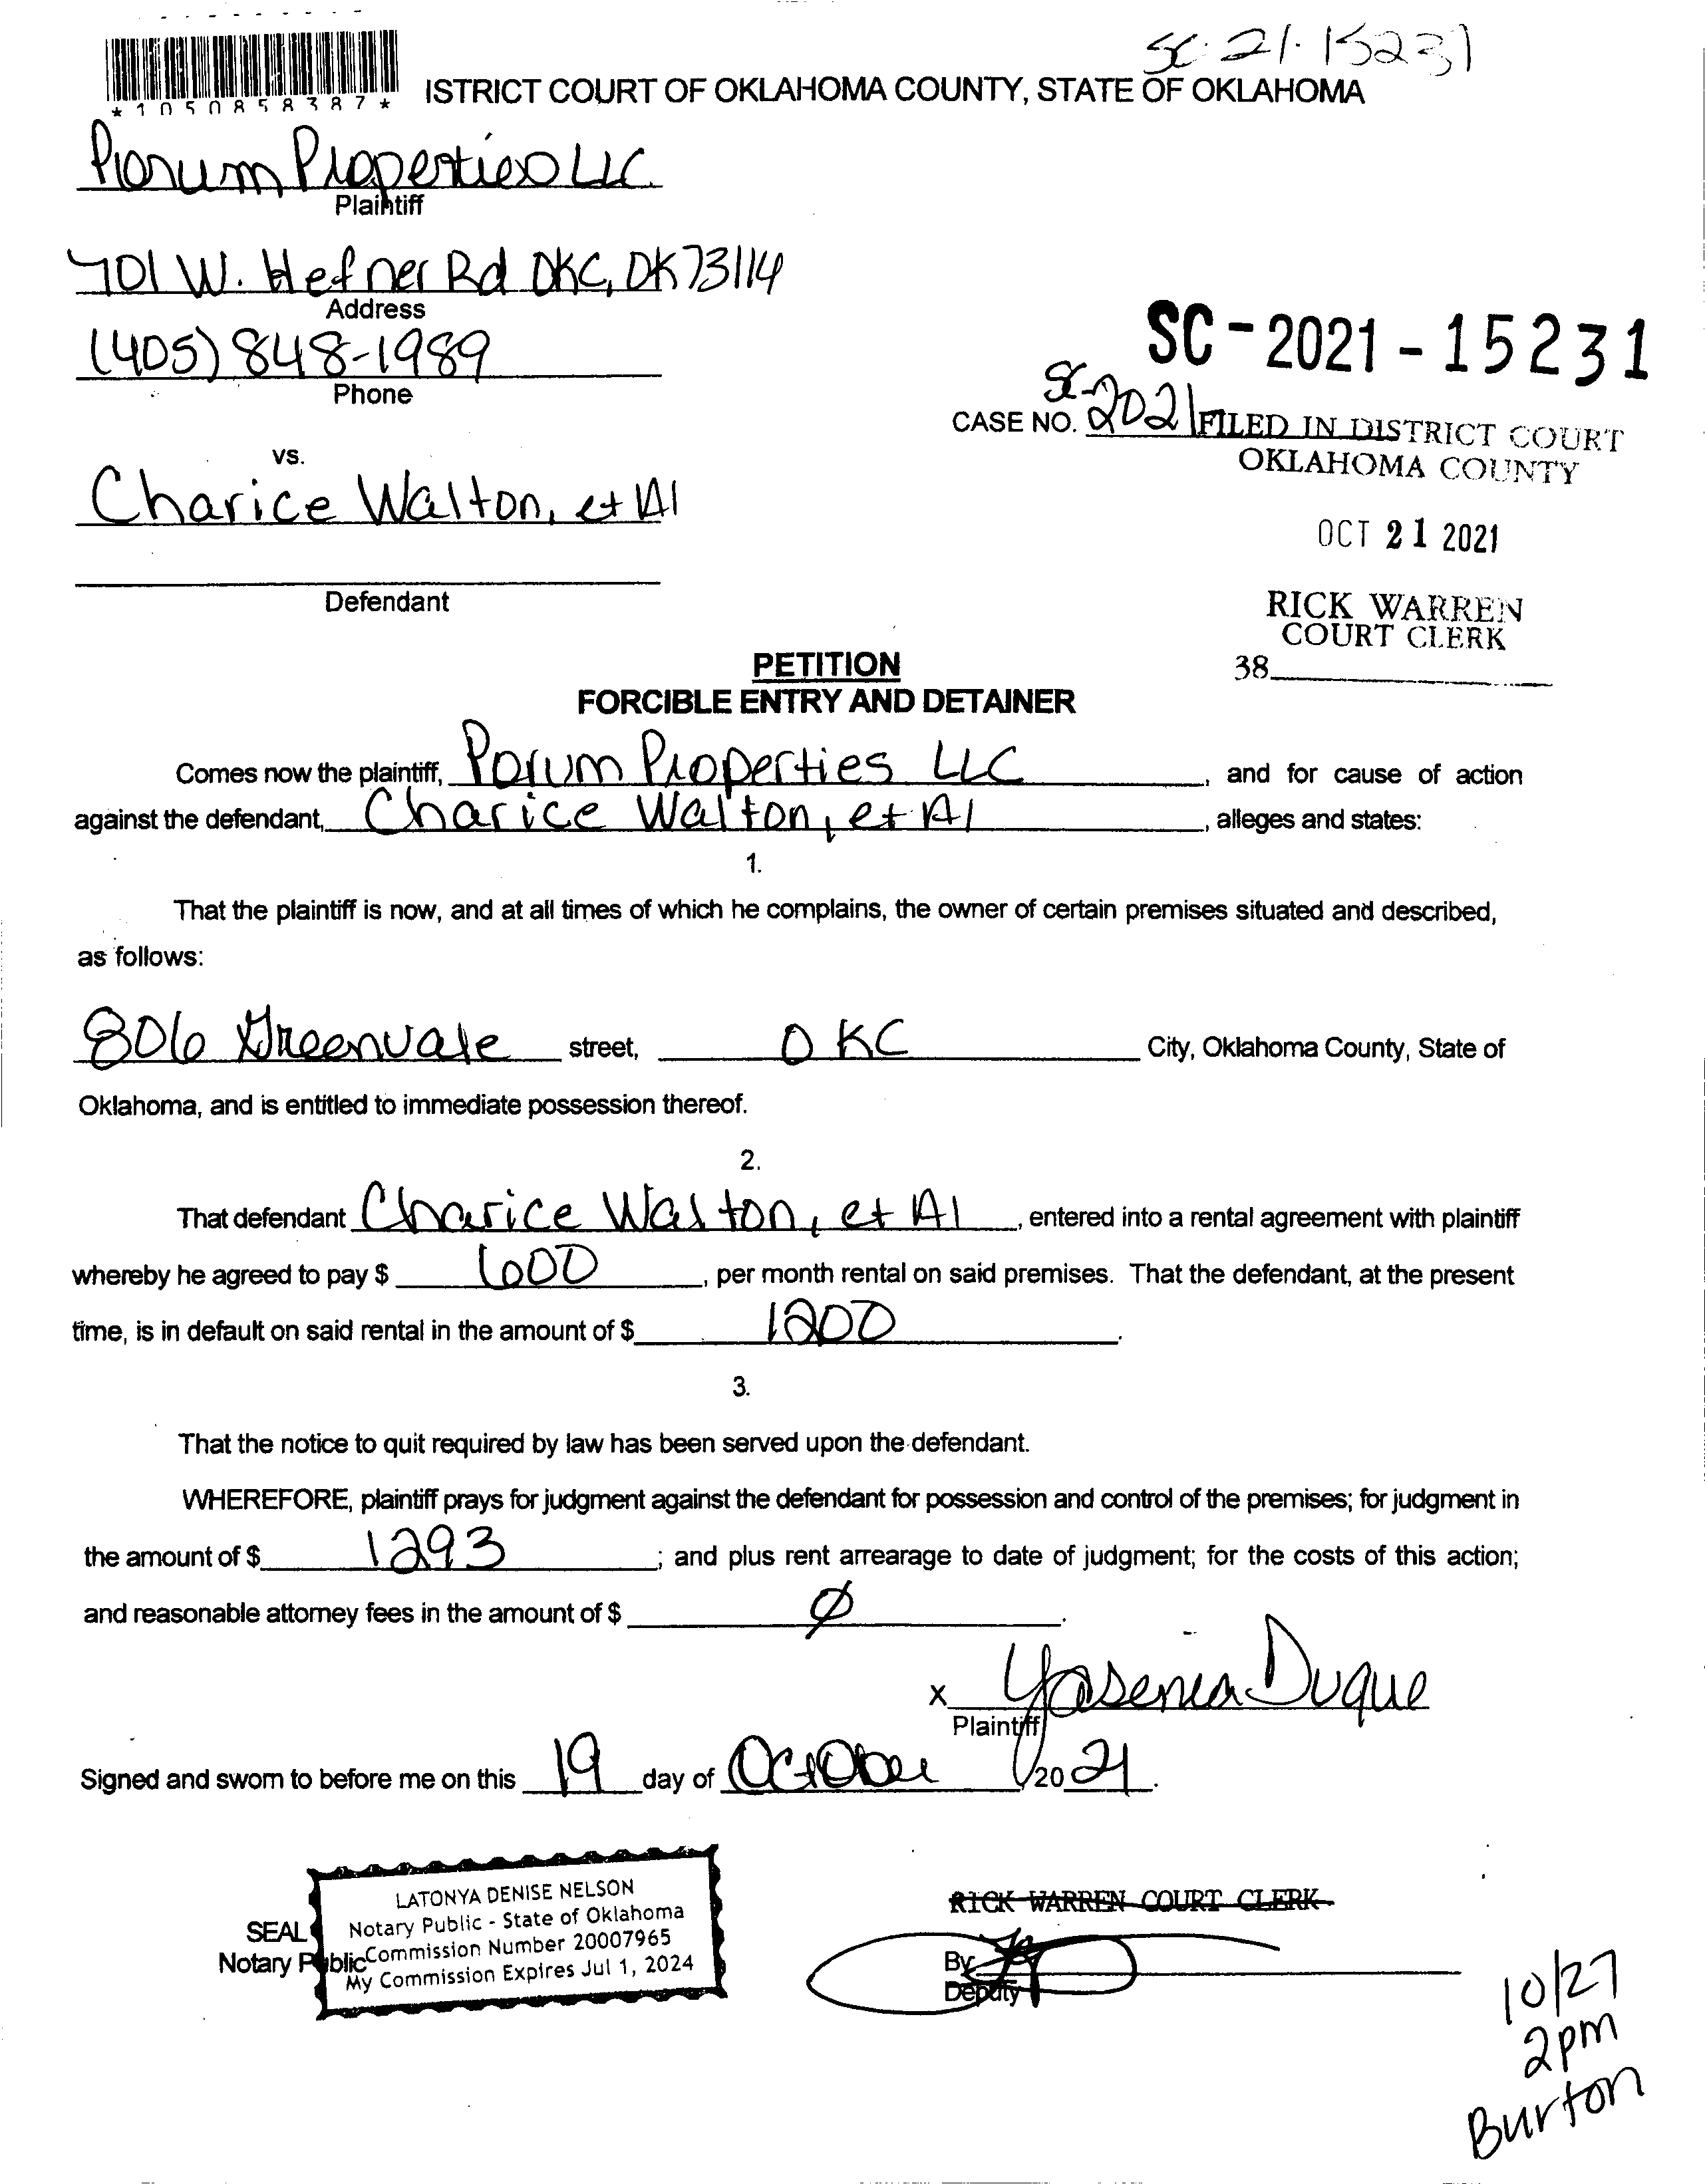 SC-21-15231
*1050858387*
ISTRICT COURT OF OKLAHOMA COUNTY, STATE OF OKLAHOMA
Porum Properties LLC
Plaintiff
701 W. Hefner Rd OKC, OK 73114
Address
(405) 848-1989
Phone
SC-2021-15231
SC-
CASE NO. 2021
FILED IN DISTRICT COURT
OKLAHOMA COUNTY
vs.
Charice Walton, et Al
OCT 21 2021
Defendant
RICK WARREN
COURT CLERK
38
PETITION
FORCIBLE ENTRY AND DETAINER
Comes now the plaintiff, Porum Properties LLC, and for cause of action
against the defendant, Charice Walton, et Al, alleges and states:
1.
That the plaintiff is now, and at all times of which he complains, the owner of certain premises situated and described,
as follows:
806 Greenvale street, OKC City, Oklahoma County, State of
Oklahoma, and is entitled to immediate possession thereof.
2.
That defendant Charice Walton, et Al, entered into a rental agreement with plaintiff
whereby he agreed to pay $ 600, per month rental on said premises. That the defendant, at the present
time, is in default on said rental in the amount of $ 1200.
3.
That the notice to quit required by law has been served upon the defendant.
WHEREFORE, plaintiff prays for judgment against the defendant for possession and control of the premises; for judgment in
the amount of $ 1293; and plus rent arrearage to date of judgment; for the costs of this action;
and reasonable attorney fees in the amount of $ Ø.
x Yasenia Duque
Plaintiff
Signed and sworn to before me on this 19 day of October 2021.
LATONYA DENISE NELSON
Notary Public - State of Oklahoma
Commission Number 20007965
My Commission Expires Jul 1, 2024
SEAL
Notary Public
RICK WARREN COURT CLERK
By
Deputy
10/27
2pm
Burton